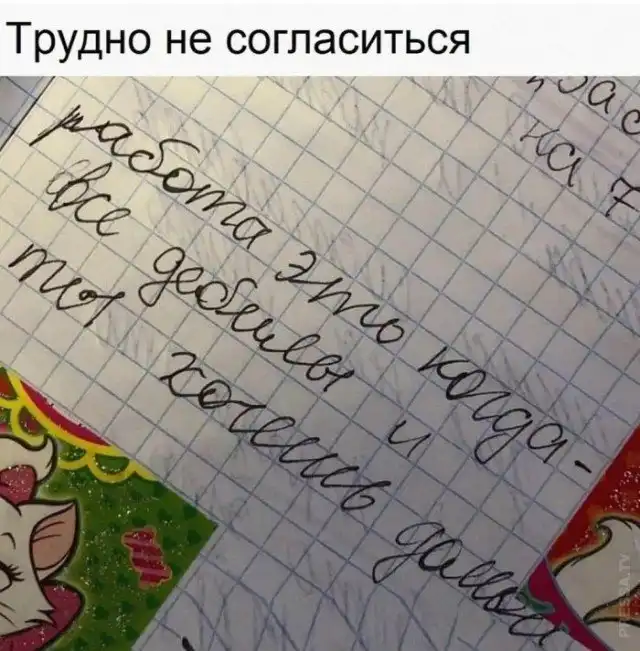 Трудно не согласиться
на 7
работа это когда-
все дебилы и
ты хочешь домой
PRESSA.TV